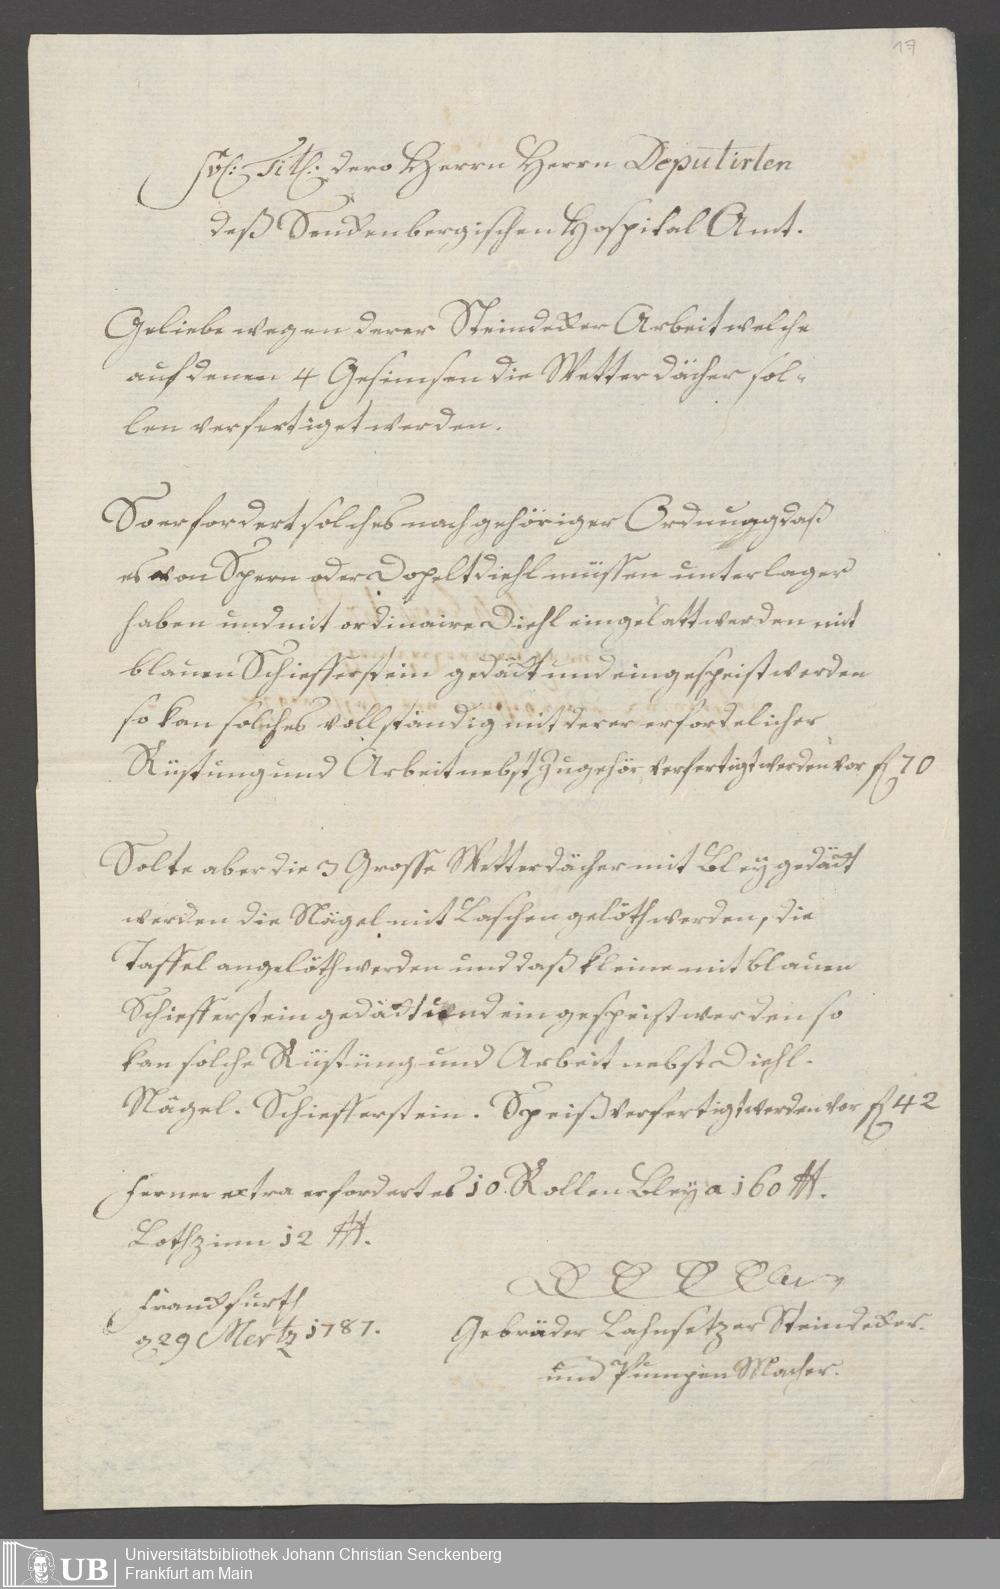 17
Titl: dero Herrn Herrn Deputirten
deß Senckenbergischen Hospital Amt.
Geliebe wegen derer Steindecker Arbeit welche
auf denen 4 Gesimsen die Wetterdächer sol-
len verfertiget werden.
So erfordert solches nach gehöriger Ordnung daß
es von Spern oder Dopelt diehl müssen unterlager
haben und mit ordinaire Diehl eingelatt werden mit
blauen Schiefferstein gedäckt und eingespeist werden
so kan solches vollständig mit derer erfordelicher
Rüstung und Arbeit nebst Zugehör verfertigt werden vor f 70
Solte aber die 3 Grosse Wetterdächer mit Bley gedäckt
werden die Nägel mit Laschen gelöth werden, die
Taffel angelöth werden und daß kleine mit blauen
Schiefferstein gedäckt und eingespeist werden so
kan solche Rüstüng und Arbeit nebst Diehl.
Nägel. Schiefferstein. Speiß verfertigt werden vor f 42
Ferner extra erfordert es 10 Rollen Bley a 160 ℔.
Lothzinn 12 ℔.
Franckfurth
d 29 Mertz 1787.
Gebrüder Lahnsetzer Steindecker.
und Pumpen Macher.
UB
Universitätsbibliothek Johann Christian Senckenberg
Frankfurt am Main